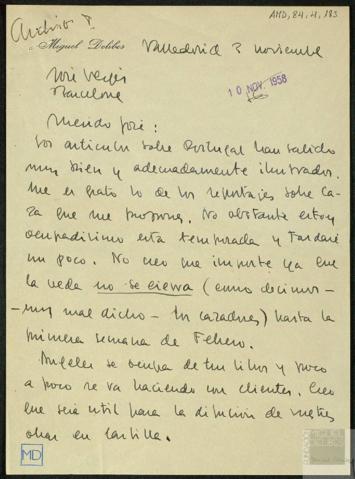 AMD, 84, 4, 183
Archivo P.
Miguel Delibes
Valladolid 3 noviembre
José Vergés
Barcelona
10 NOV. 1958
Querido José:
Los artículos sobre Portugal han salido
muy bien y adecuadamente ilustrados.
Me es grato lo de los reportajes sobre ca-
za que me propones. No obstante estoy
ocupadísimo esta temporada y tardaré
un poco. No creo que importe ya que
la veda no se cierra (como decimos -
- muy mal dicho - los cazadores) hasta la
primera semana de Febrero.
Ángeles se ocupa de tus libros y poco
a poco se va haciendo con clientes. Creo
que será útil para la difusión de vuestras
obras en Castilla.
MD
FUNDACIÓN
MIGUEL
DELIBES